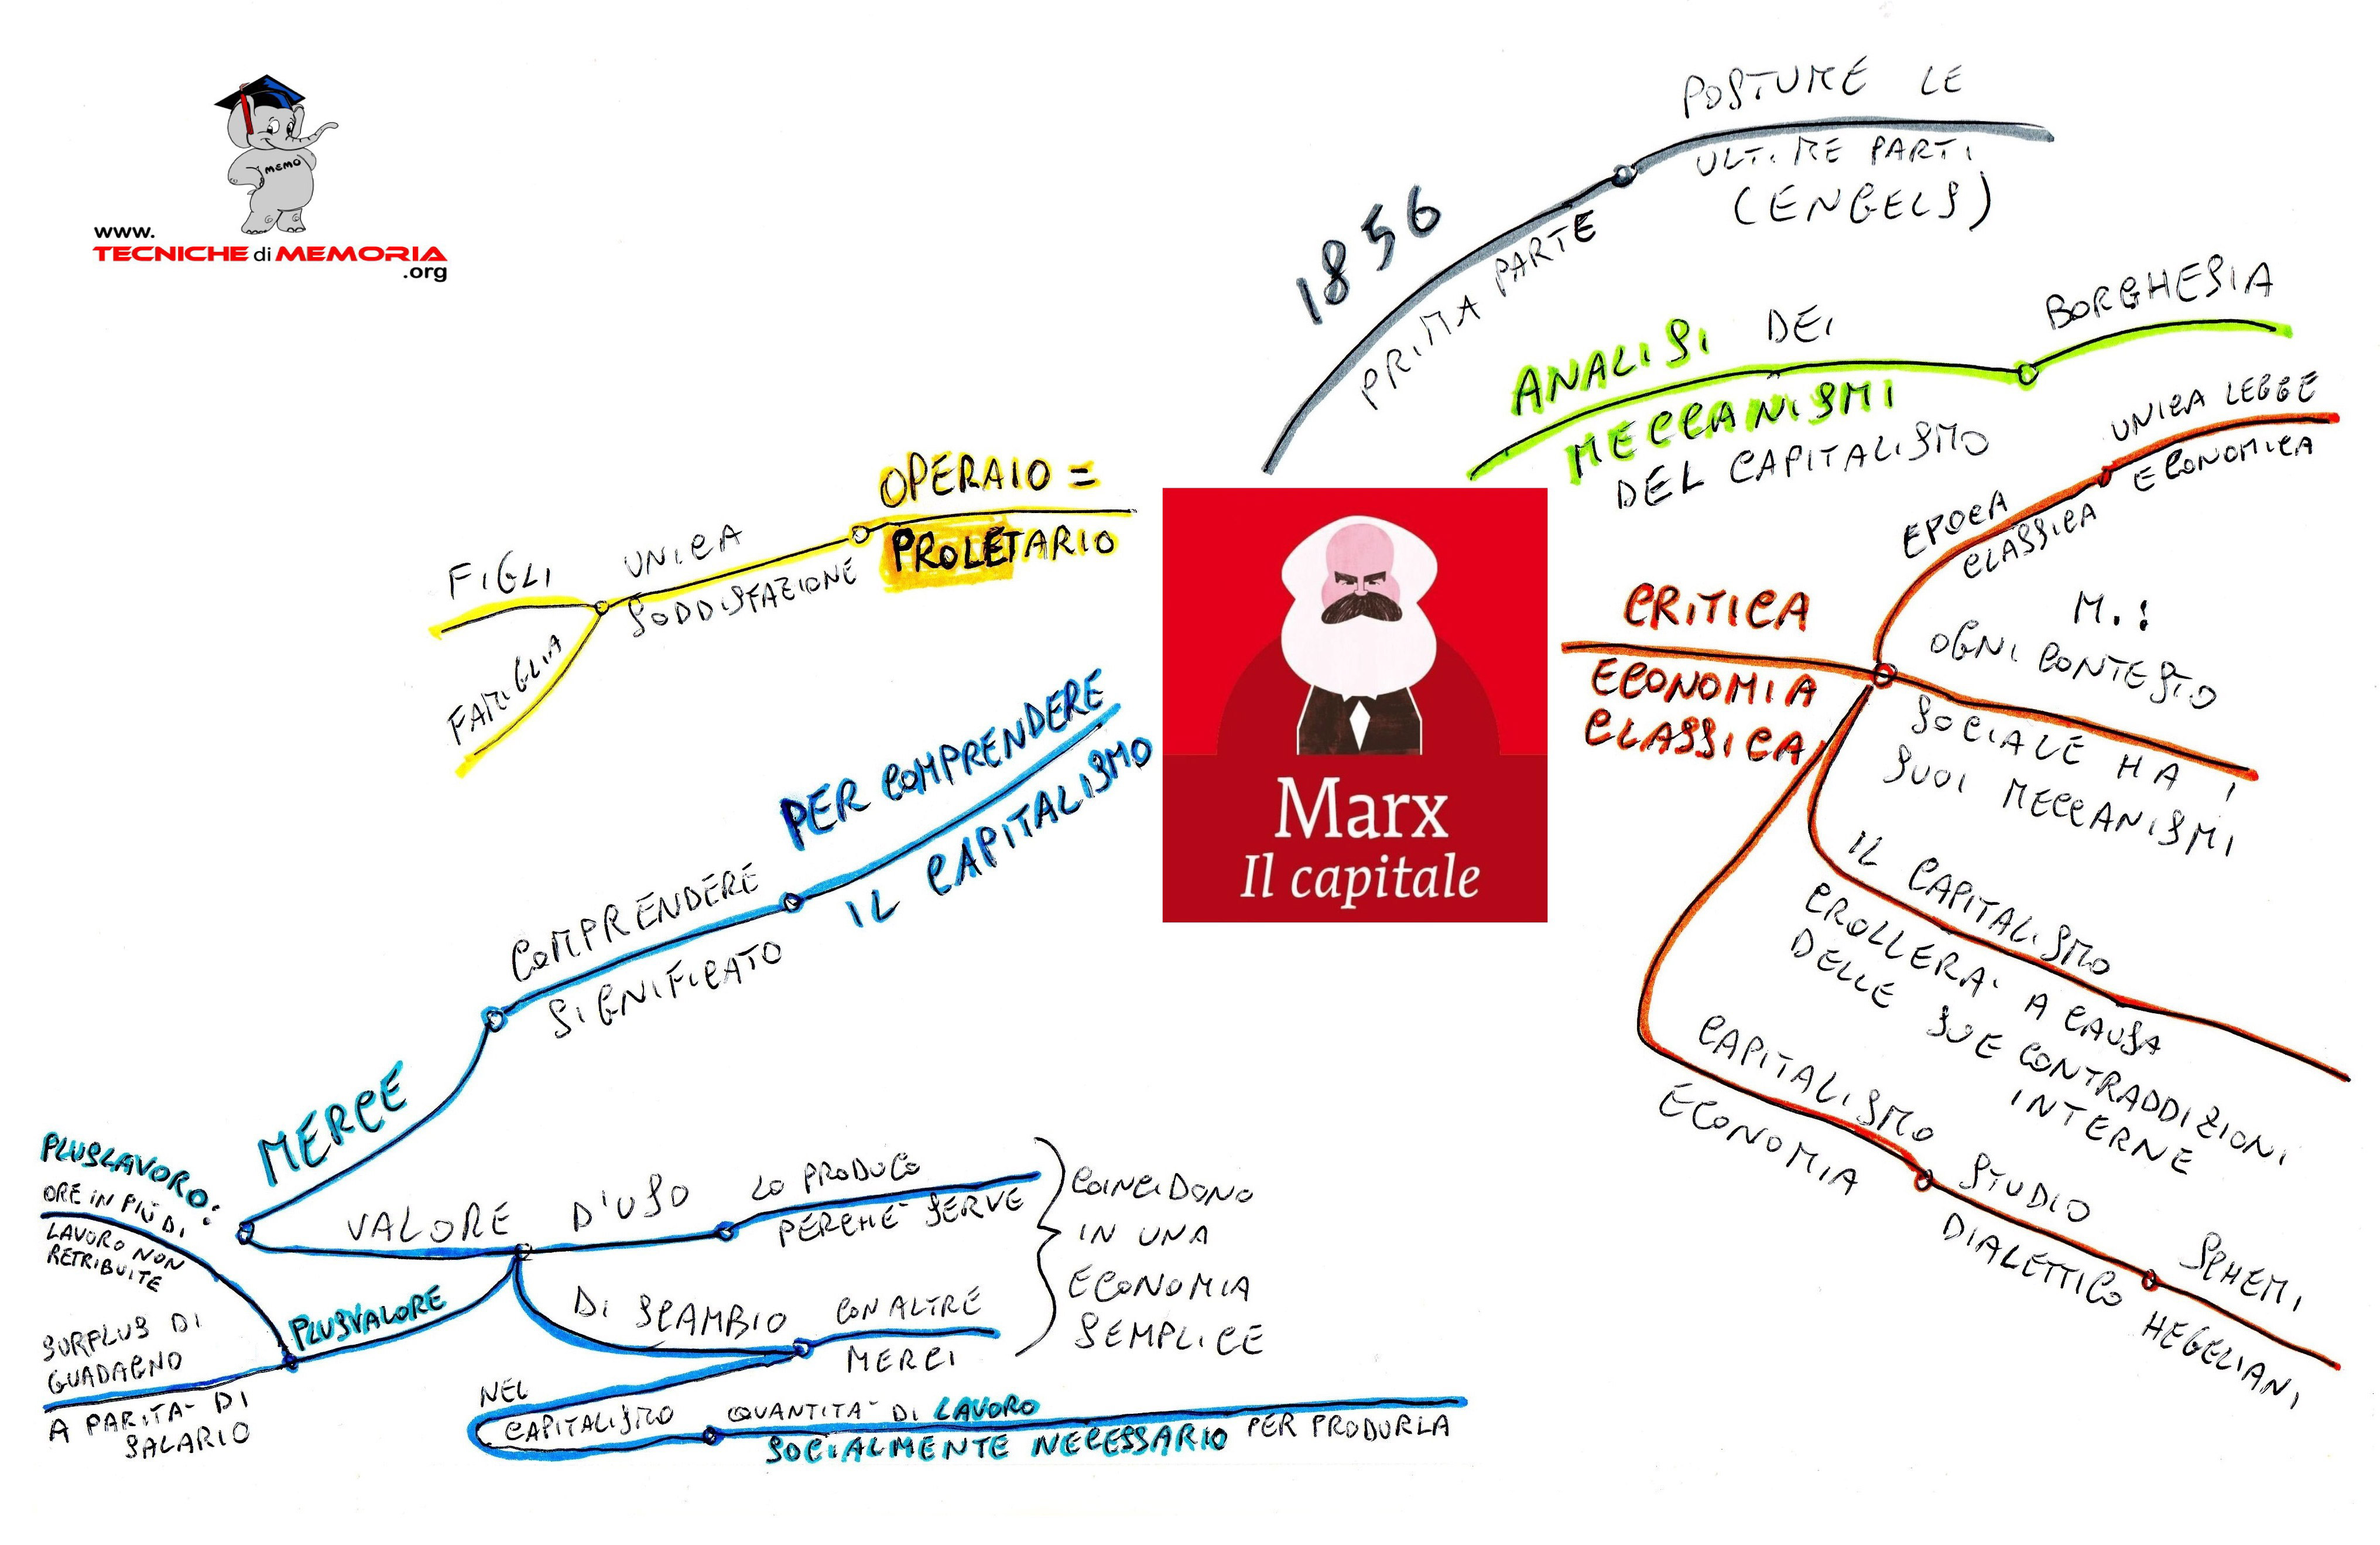 MEMO
www.
TECNICHE di MEMORIA
.org
1856
PRIMA PARTE
POSTUME LE
ULTIME PARTI
(ENGELS)
ANALISI DEI
MECCANISMI
DEL CAPITALISMO
BORGHESIA
CRITICA
ECONOMIA
CLASSICA
EPOCA
CLASSICA
UNICA LEGGE
ECONOMICA
M.:
OGNI CONTESTO
SOCIALE HA I
SUOI MECCANISMI
IL CAPITALISMO
CROLLERA' A CAUSA
DELLE SUE CONTRADDIZIONI
INTERNE
CAPITALISMO
ECONOMIA
STUDIO
DIALETTICO
SCHEMI
HEGELIANI
Marx
Il capitale
OPERAIO =
PROLETARIO
UNICA
SODDISFAZIONE
FIGLI
FAMIGLIA
PER COMPRENDERE
IL CAPITALISMO
COMPRENDERE
SIGNIFICATO
MERCE
VALORE
D'USO
LO PRODUCO
PERCHE' SERVE
DI SCAMBIO
CON ALTRE
MERCI
COINCIDONO
IN UNA
ECONOMIA
SEMPLICE
NEL
CAPITALISMO
QUANTITA' DI LAVORO
SOCIALMENTE NECESSARIO PER PRODURLA
PLUSVALORE
PLUSLAVORO:
ORE IN PIÙ DI
LAVORO NON
RETRIBUITE
SURPLUS DI
GUADAGNO
A PARITA' DI
SALARIO